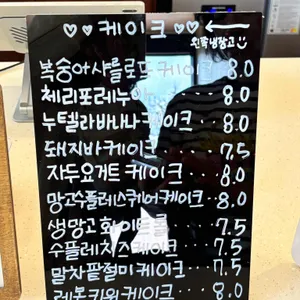 ♡♡케이크♡♡ ←
왼쪽냉장고
복숭아샤를로또케이크 8.0
체리포레누아 ··· 8.0
누텔라바나나케이크··· 8.0
돼지바케이크 ··· 7.5
자두요거트 케이크 ··· 8.0
망고수플레스퀘어케이크··8.0
생망고화이트롤 ··· 7.5
수플레치즈케이크 ··· 7.5
말차팥절미케이크··· 7.5
레몬키위케이크 ··· 8.0